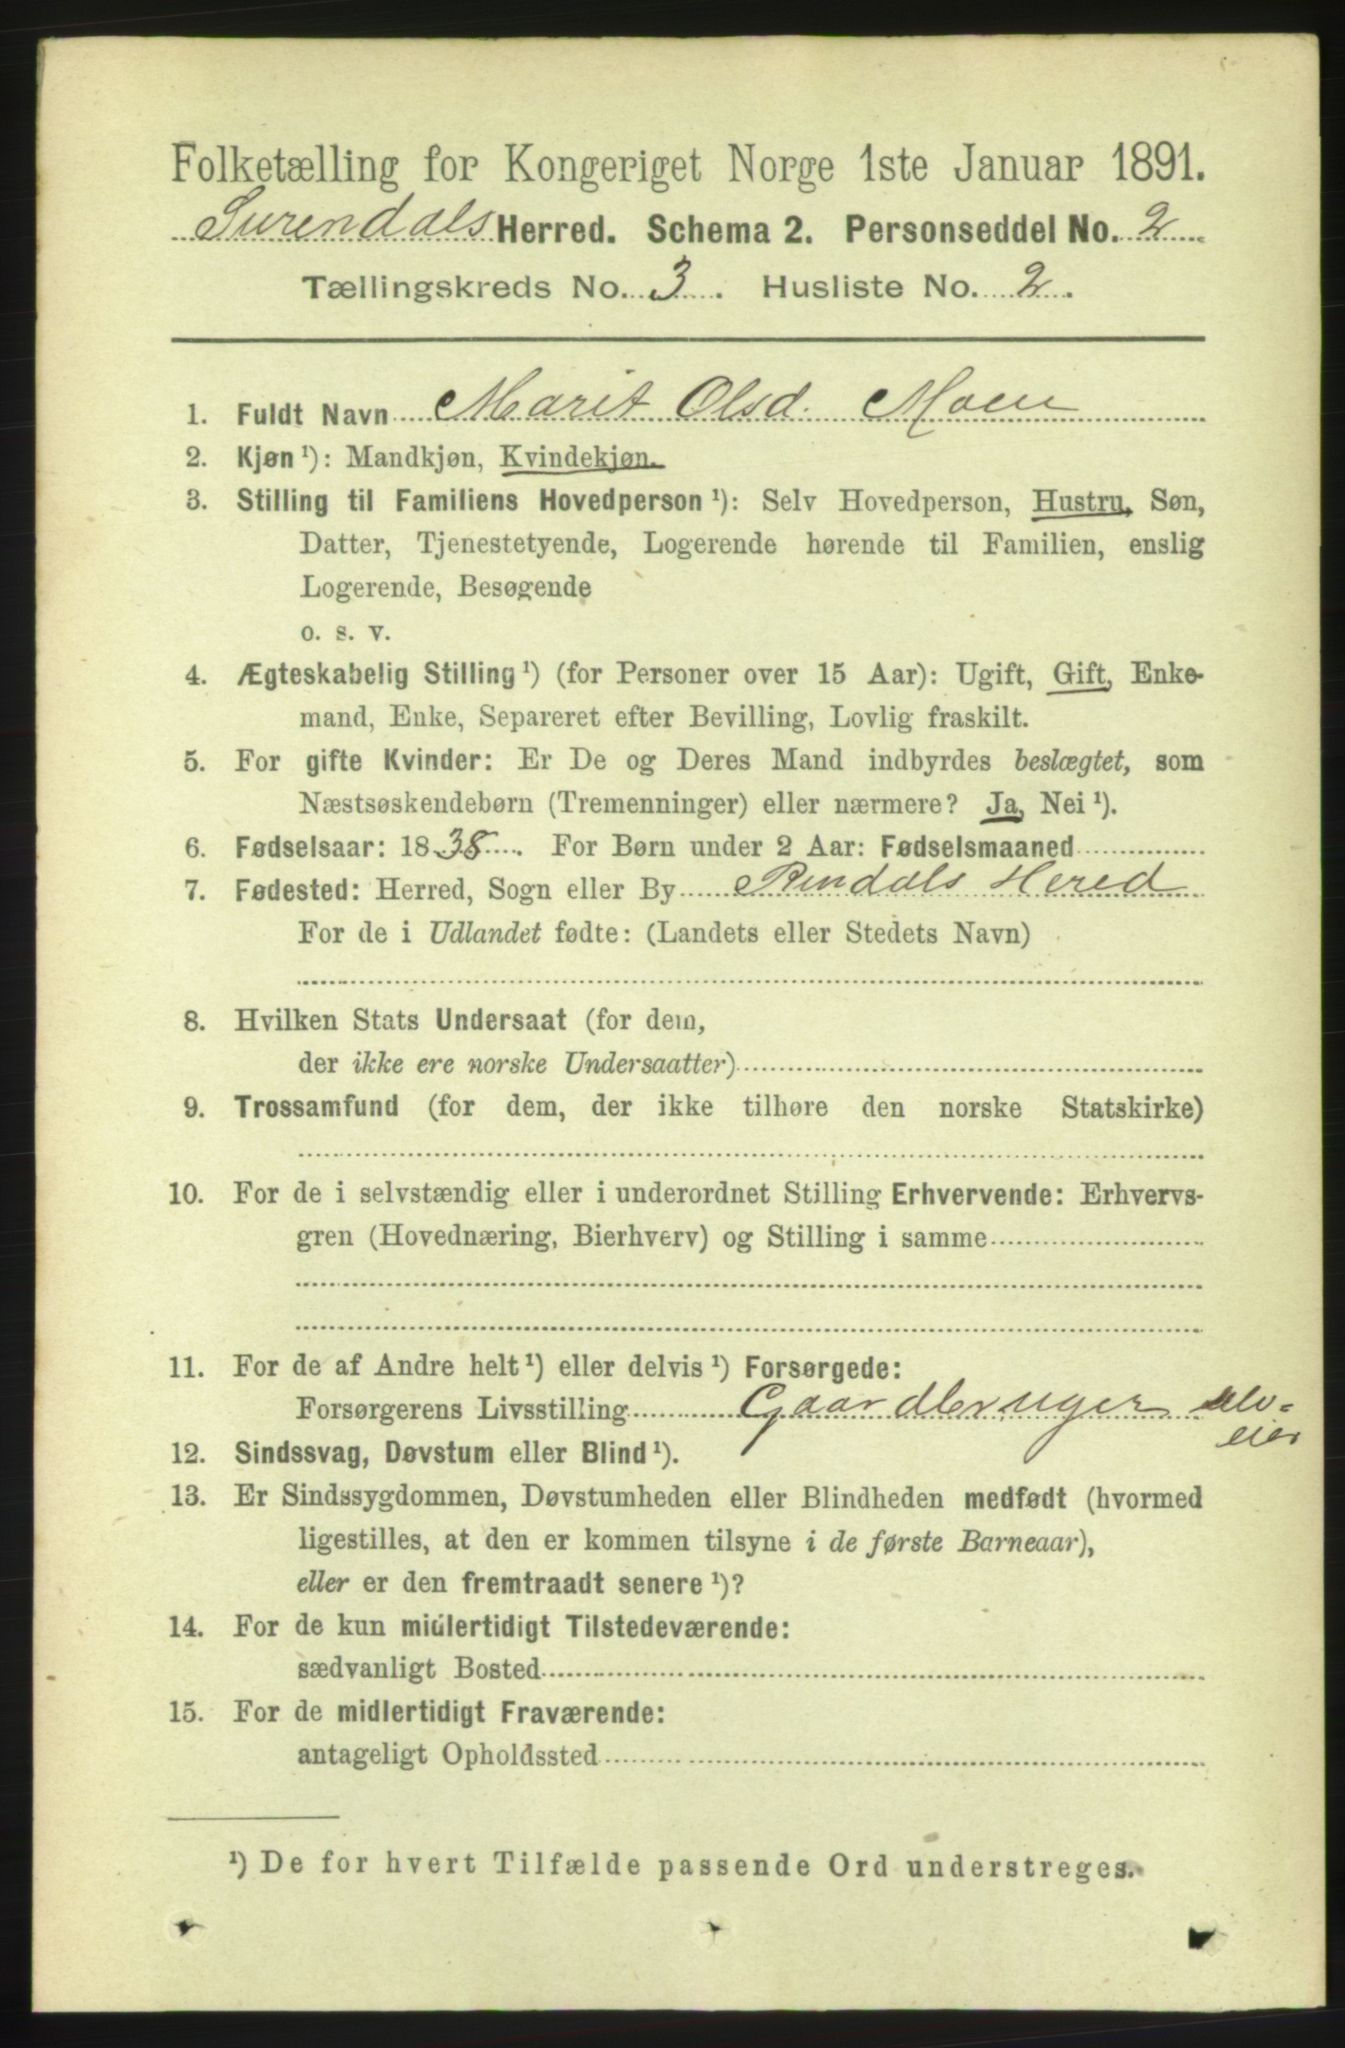 Folketælling for Kongeriget Norge 1ste Januar 1891.
Surendals Herred. Schema 2. Personseddel No. 2
Tællingskreds No. 3. Husliste No. 2.
1. Fuldt Navn Marit Olsd. Moen
2. Kjøn ¹): Mandkjøn, Kvindekjøn.
3. Stilling til Familiens Hovedperson ¹): Selv Hovedperson, Hustru, Søn,
Datter, Tjenestetyende, Logerende hørende til Familien, enslig
Logerende, Besøgende
o. s. v.
4. Ægteskabelig Stilling ¹) (for Personer over 15 Aar): Ugift, Gift, Enke-
mand, Enke, Separeret efter Bevilling, Lovlig fraskilt.
5. For gifte Kvinder: Er De og Deres Mand indbyrdes beslægtet, som
Næstsøskendebørn (Tremenninger) eller nærmere? Ja, Nei ¹).
6. Fødselsaar: 1838. For Børn under 2 Aar: Fødselsmaaned
7. Fødested: Herred, Sogn eller By Rindals Hered
For de i Udlandet fødte: (Landets eller Stedets Navn)
8. Hvilken Stats Undersaat (for dem,
der ikke ere norske Undersaatter)
9. Trossamfund (for dem, der ikke tilhøre den norske Statskirke)
10. For de i selvstændig eller i underordnet Stilling Erhvervende: Erhvervs-
gren (Hovednæring, Bierhverv) og Stilling i samme
11. For de af Andre helt ¹) eller delvis ¹) Forsørgede:
Forsørgerens Livsstilling Gaardbruger selv-
eier
12. Sindssvag, Døvstum eller Blind ¹).
13. Er Sindssygdommen, Døvstumheden eller Blindheden medfødt (hvormed
ligestilles, at den er kommen tilsyne i de første Barneaar),
eller er den fremtraadt senere ¹)?
14. For de kun midlertidigt Tilstedeværende:
sædvanligt Bosted
15. For de midlertidigt Fraværende:
antageligt Opholdssted
¹) De for hvert Tilfælde passende Ord understreges.